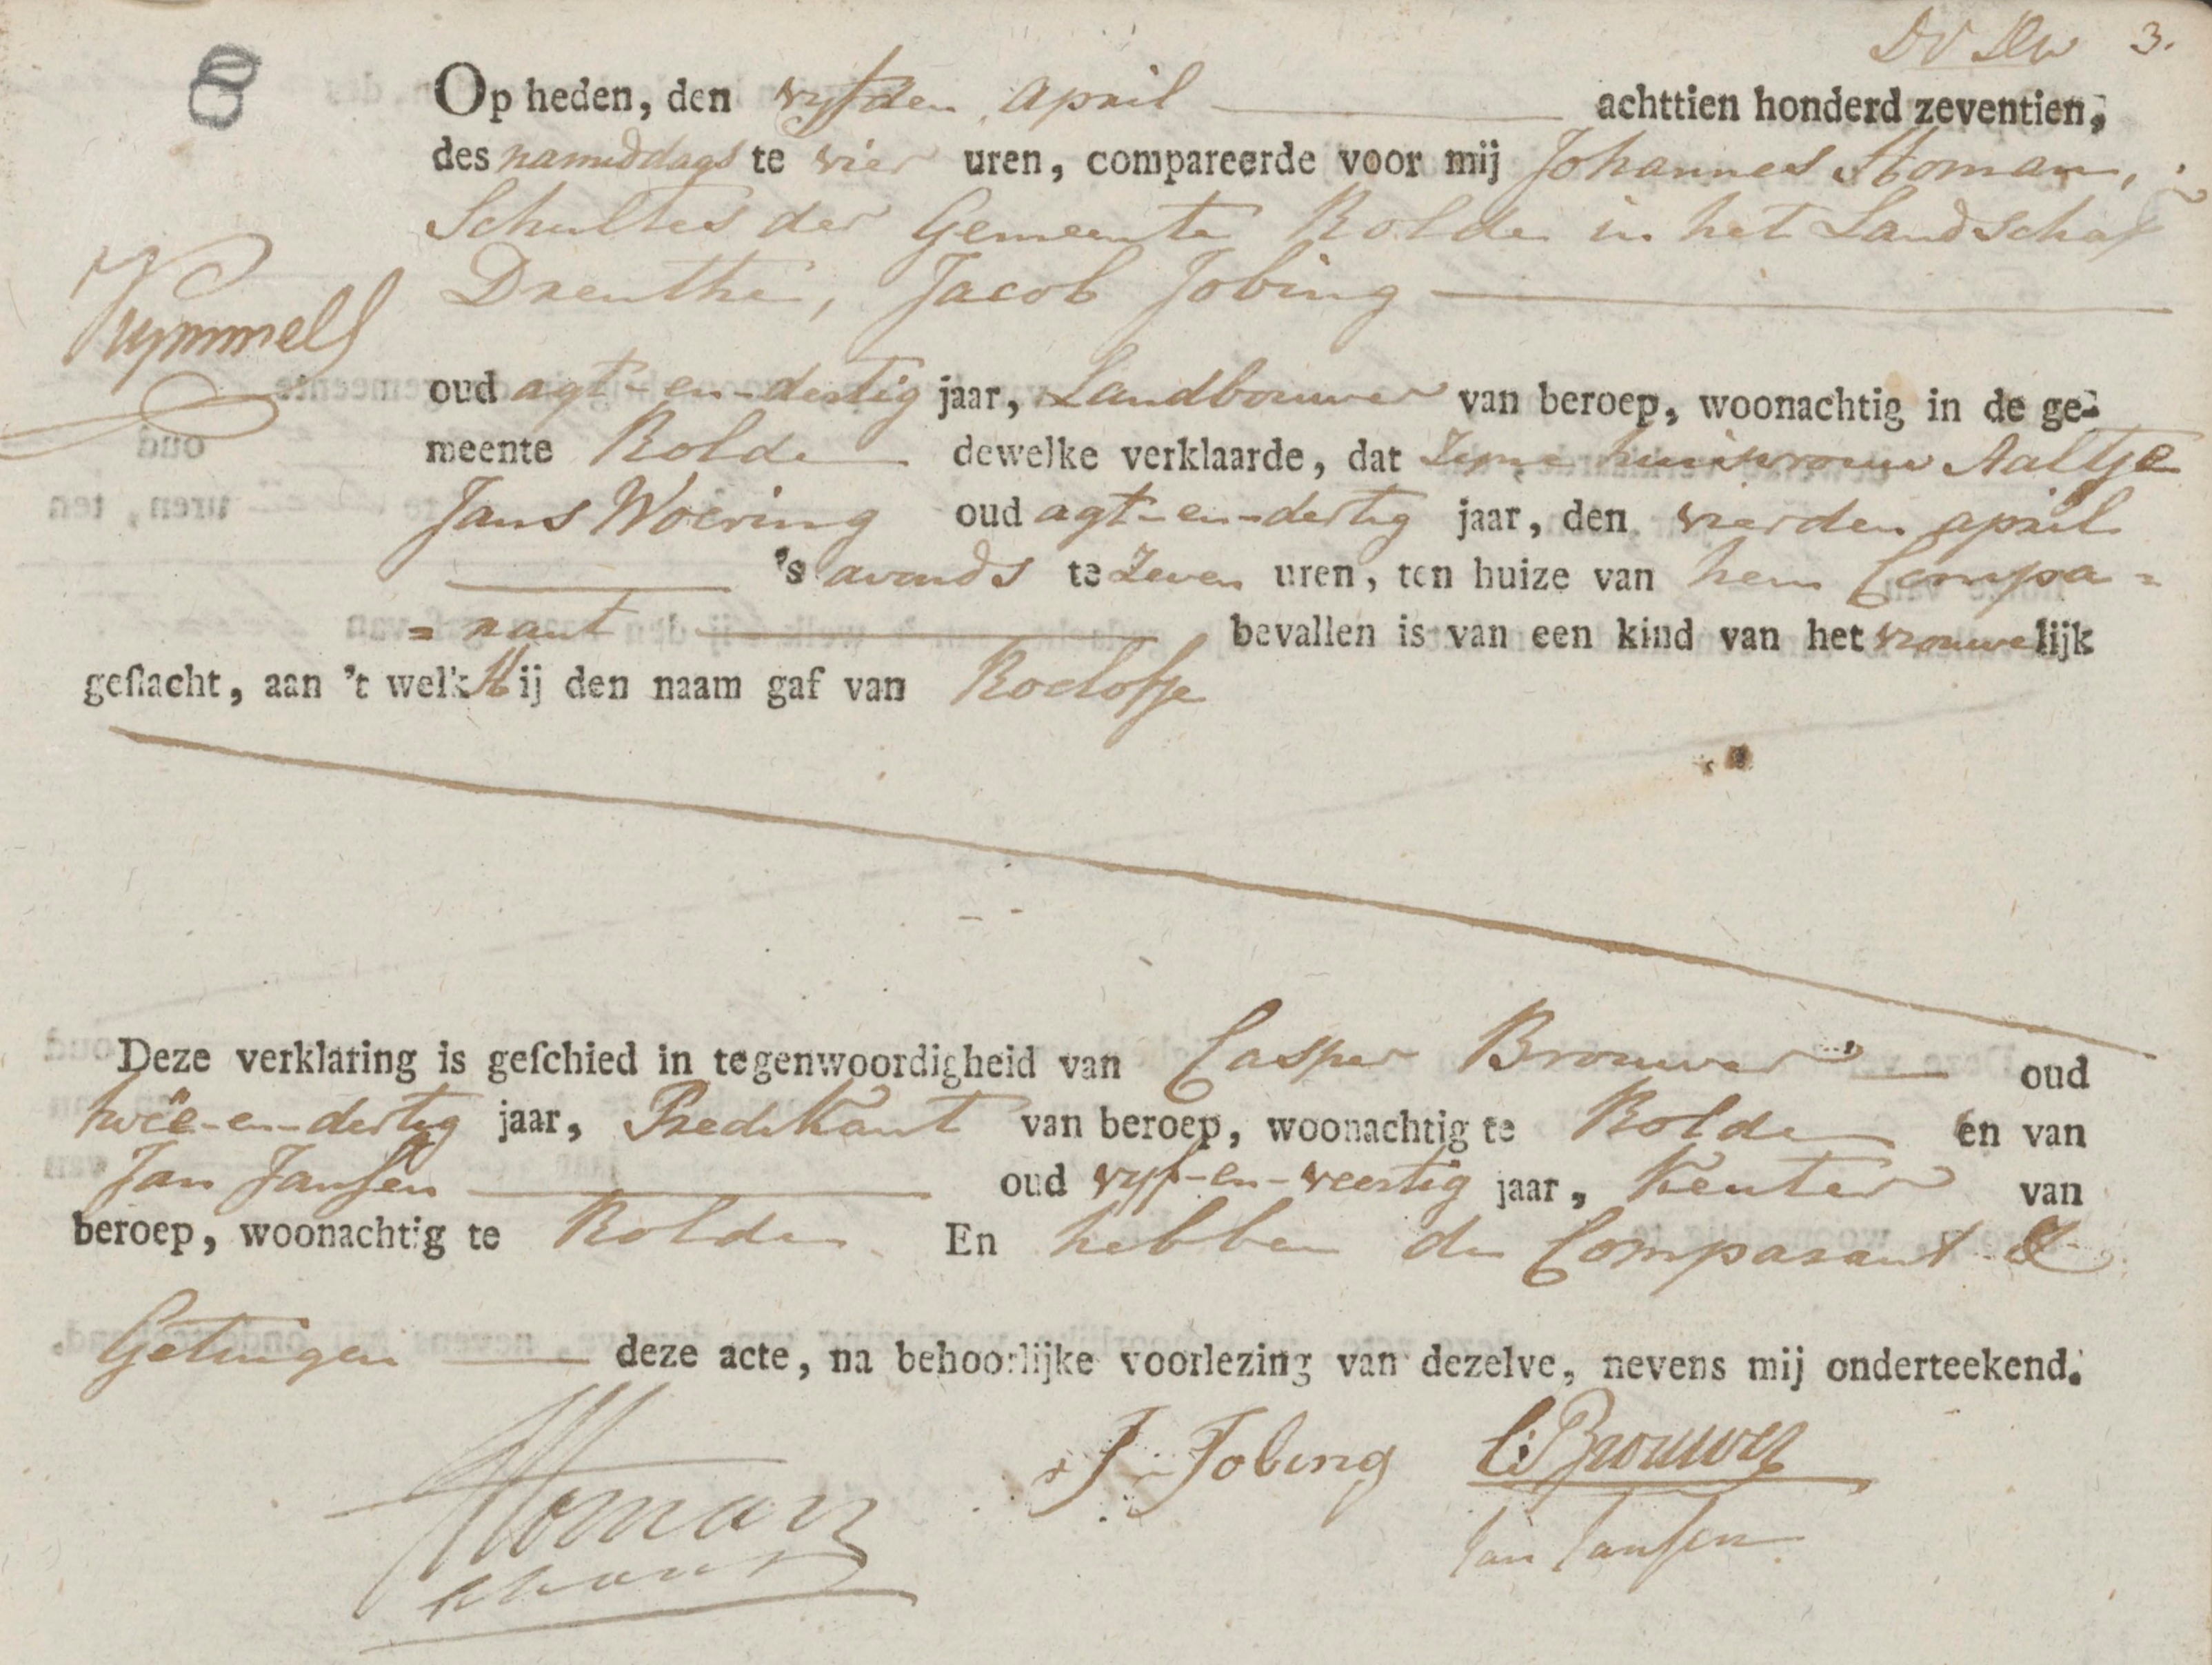 3.
8
Op heden, den vyfden april achttien honderd zeventien,
des namiddags te vier uren, compareerde voor mij Johannes Homan,
Schultes der Gemeente Rolde in het Landschap
Drenthe, Jacob Jobing
Kymmell
oud agt-en-dertig jaar, Landbouwer van beroep, woonachtig in de ge-
meente Rolde dewelke verklaarde, dat Zyne huisvrouw Aaltje
Jans Woering oud agt-en-dertig jaar, den vierden april
's avonds te Zeven uren, ten huize van hem Compa=
=rant bevallen is van een kind van het vrouwelijk
geslacht, aan 't welk Hij den naam gaf van Roelofje
Deze verklaring is geschied in tegenwoordigheid van Casper Brouwer oud
twëe-en-dertig jaar, Predikant van beroep, woonachtig te Rolde en van
Jan Jansen oud vyf-en-veertig jaar, Keuter van
beroep, woonachtig te Rolde. En hebben de Comparant &
Getuigen deze acte, na behoorlijke voorlezing van dezelve, nevens mij onderteekend.
Homan
J Jobing
C: Brouwer
Jan Jansen